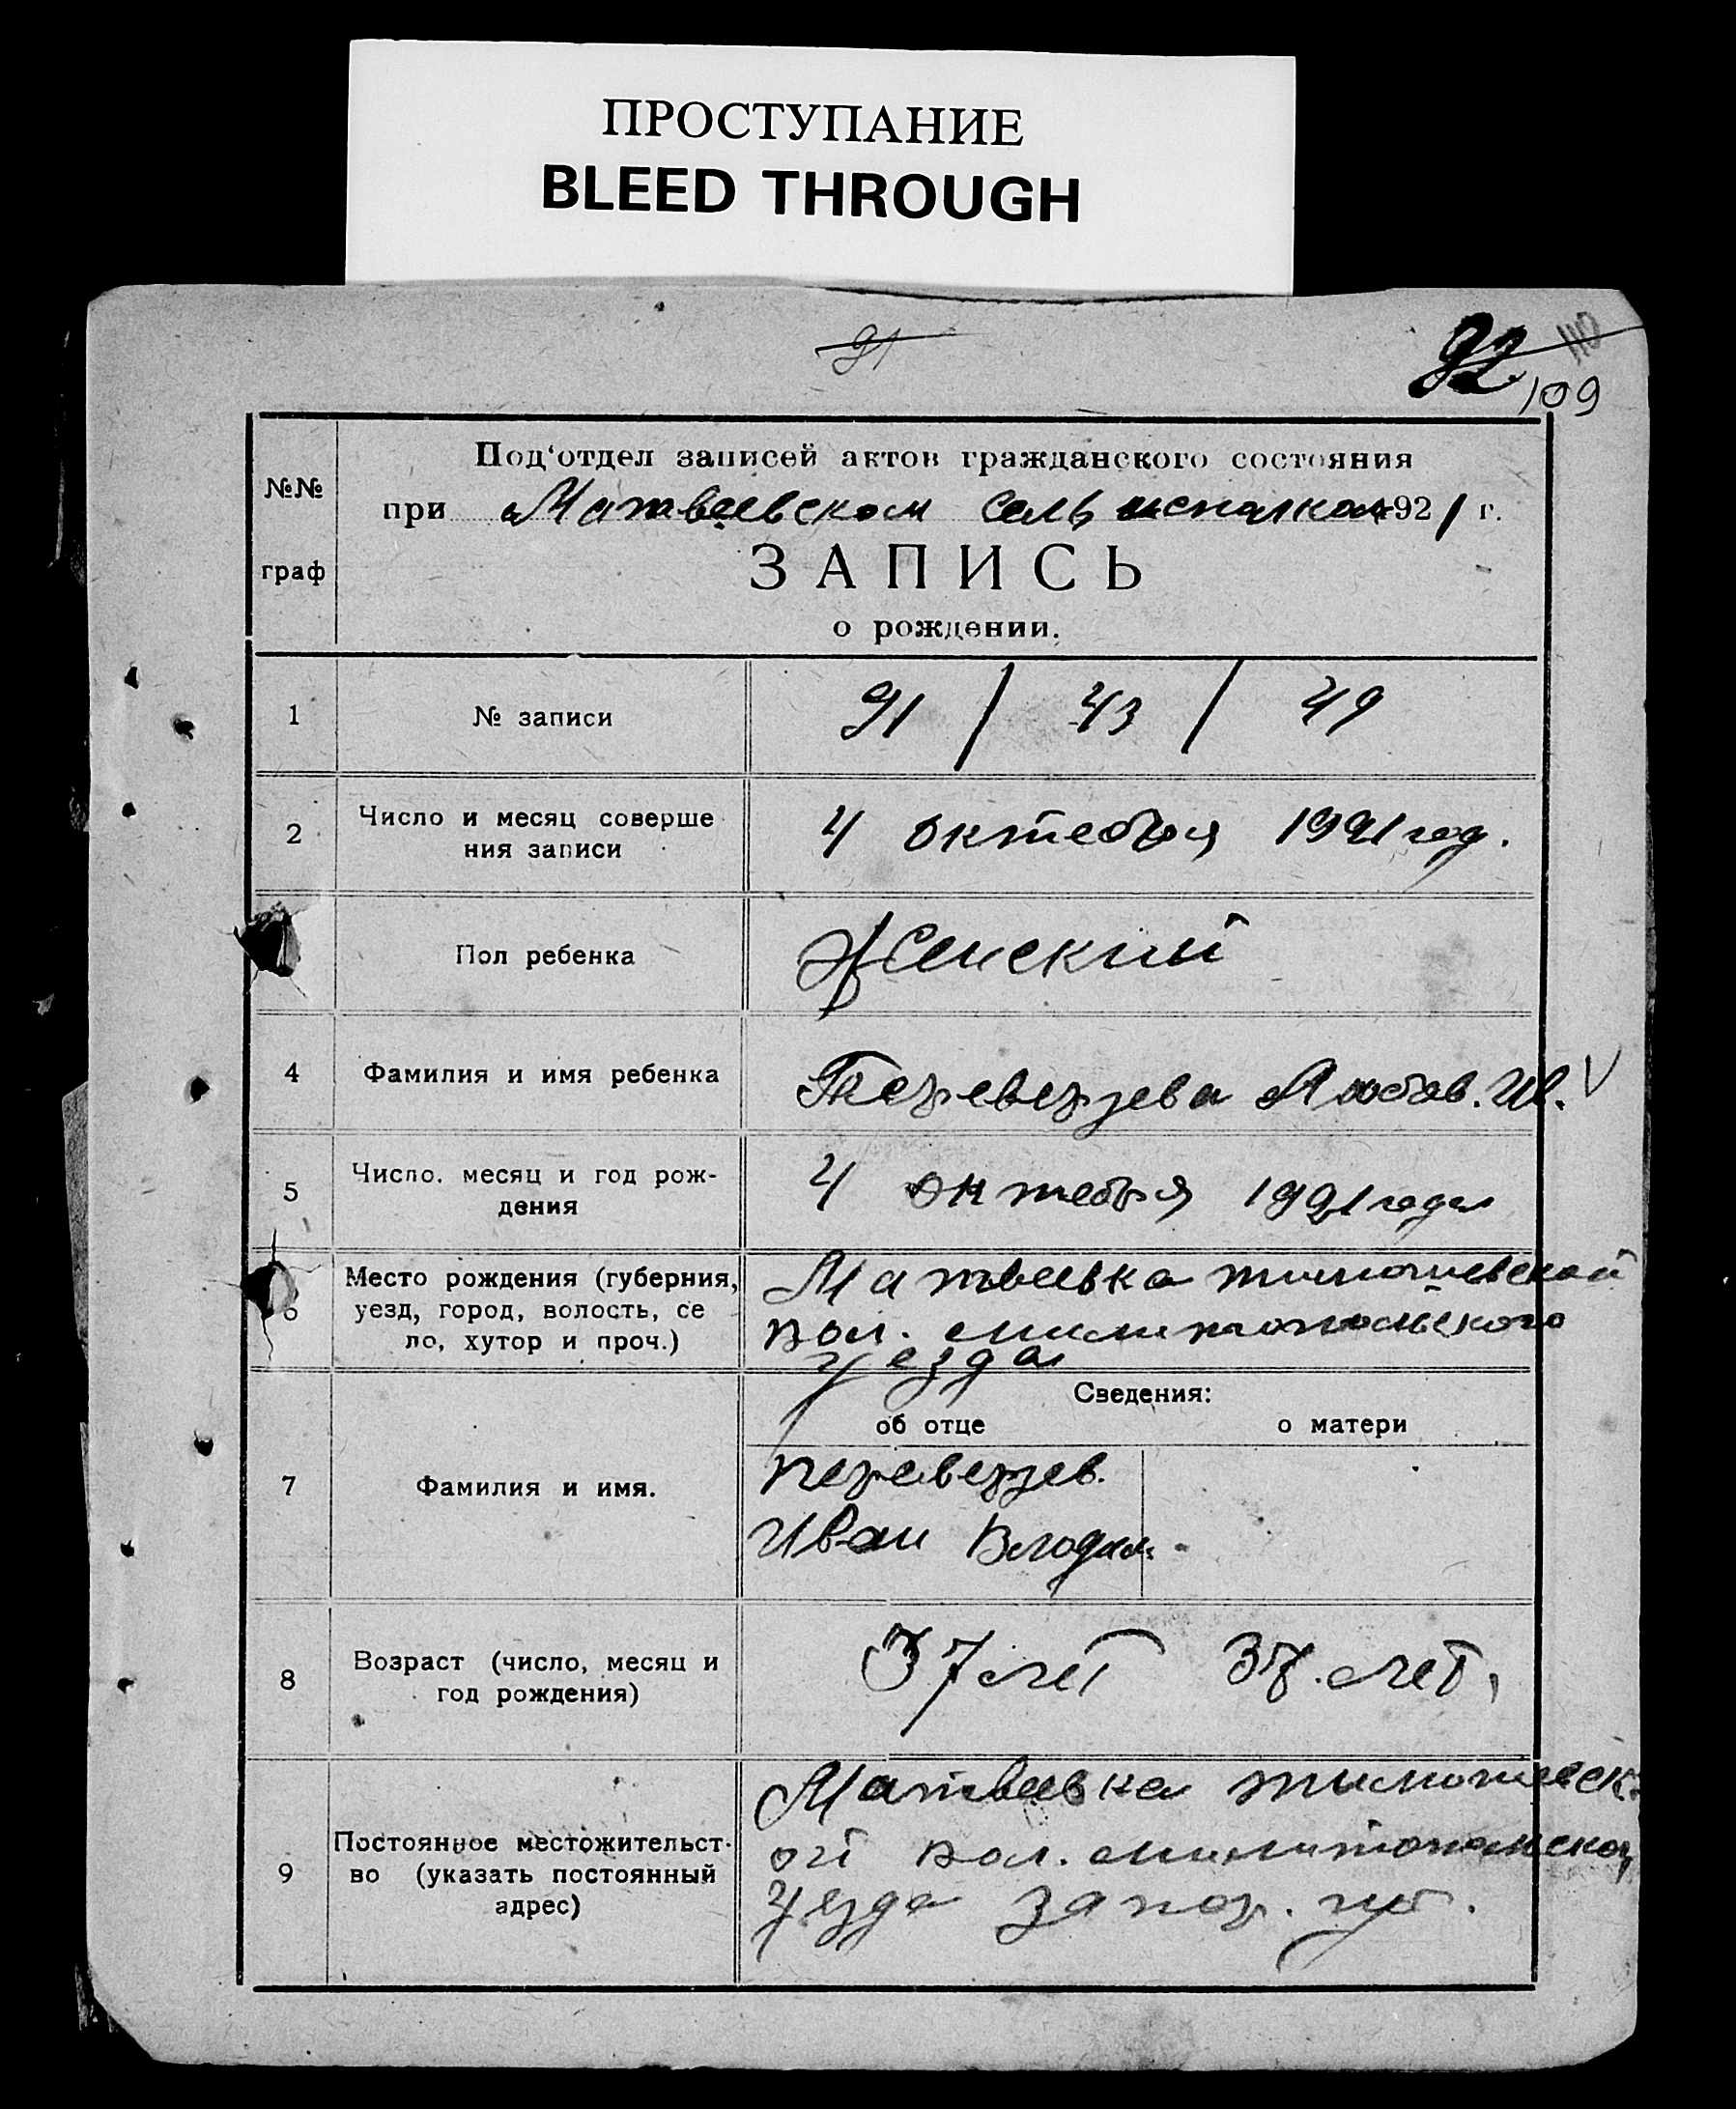 ПРОСТУПАНИЕ
BLEED THROUGH
91
92 110
109
№№ граф
Под‘отдел записей актов гражданского состояния
при Матвеевском сельисполком 1921 г.
ЗАПИСЬ
о рождении.
1 № записи 91 / 43 / 49
2 Число и месяц соверше
ния записи
4 октебря 1921 год.
Пол ребенка Женский
4 Фамилия и имя ребенка Переверзева Любов. Ив. V
5 Число. месяц и год рож-
дения
4 октебря 1921 года
6 Место рождения (губерния,
уезд, город, волость, се
ло, хутор и проч.)
Матвеевка тимошевской
вол. милитопольского
уезда
Сведения:
об отце о матери
7 Фамилия и имя.
переверзев.
Иван Влодим.
8 Возраст (число, месяц и
год рождения)
37 лет 37. лет,
9 Постоянное местожительст-
во (указать постоянный
адрес)
Матвеевка тимошевск-
ой вол. милитопольског
уезда запор. губ.